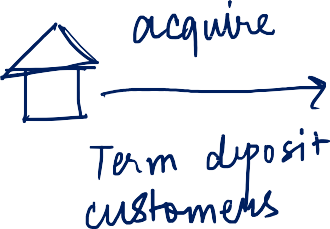 acquire
Term deposit
customers